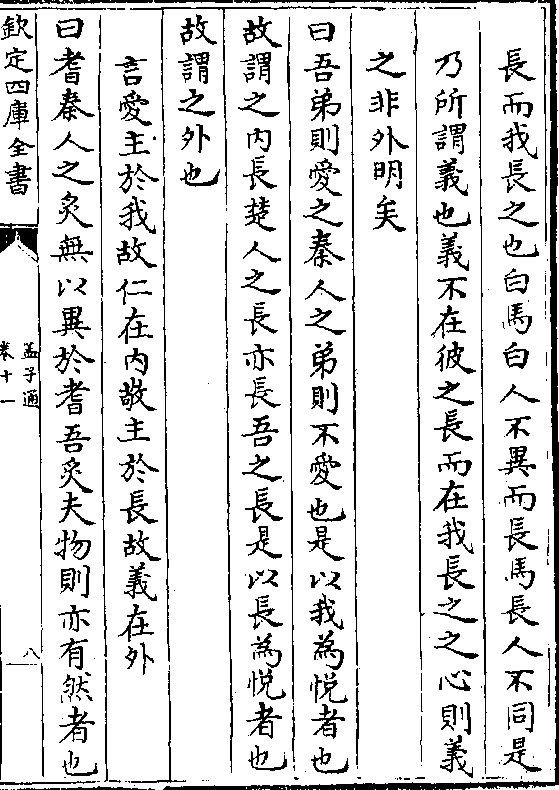 長而我長之也白馬白人不異而長馬長人不同是
乃所謂義也義不在彼之長而在我長之之心則義
之非外明矣
曰吾弟則愛之秦人之弟則不愛也是以我為悅者也
故謂之內長楚人之長亦長吾之長是以長為悅者也
故謂之外也
言愛主於我故仁在內敬主於長故義在外
曰耆秦人之炙無以異於耆吾炙夫物則亦有然者也
欽定四庫全書
孟子通
卷十一
八